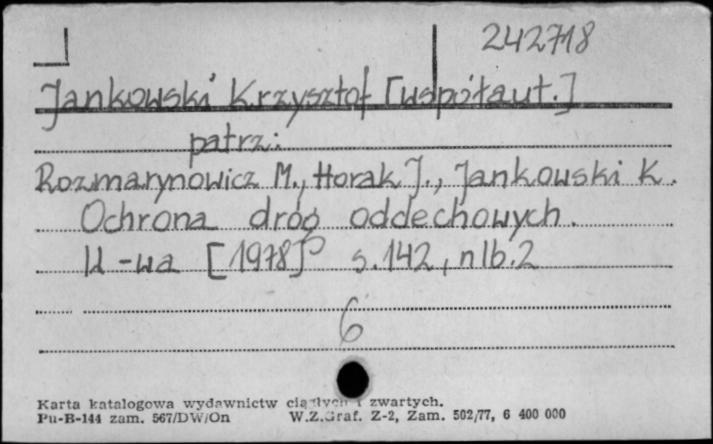 242718
Jankowski Krzysztof [współaut.]
patrz:
Rozmarynowicz M., Horak J., Jankowski K.
Ochrona dróg oddechowych.
W-wa [1978] s.142, nlb.2
6
Karta katalogowa wydawnictw ciągłych i zwartych.
Pu-B-144 zam. 567/DW/On W.Z.Graf. Z-2, Zam. 502/77, 6 400 000